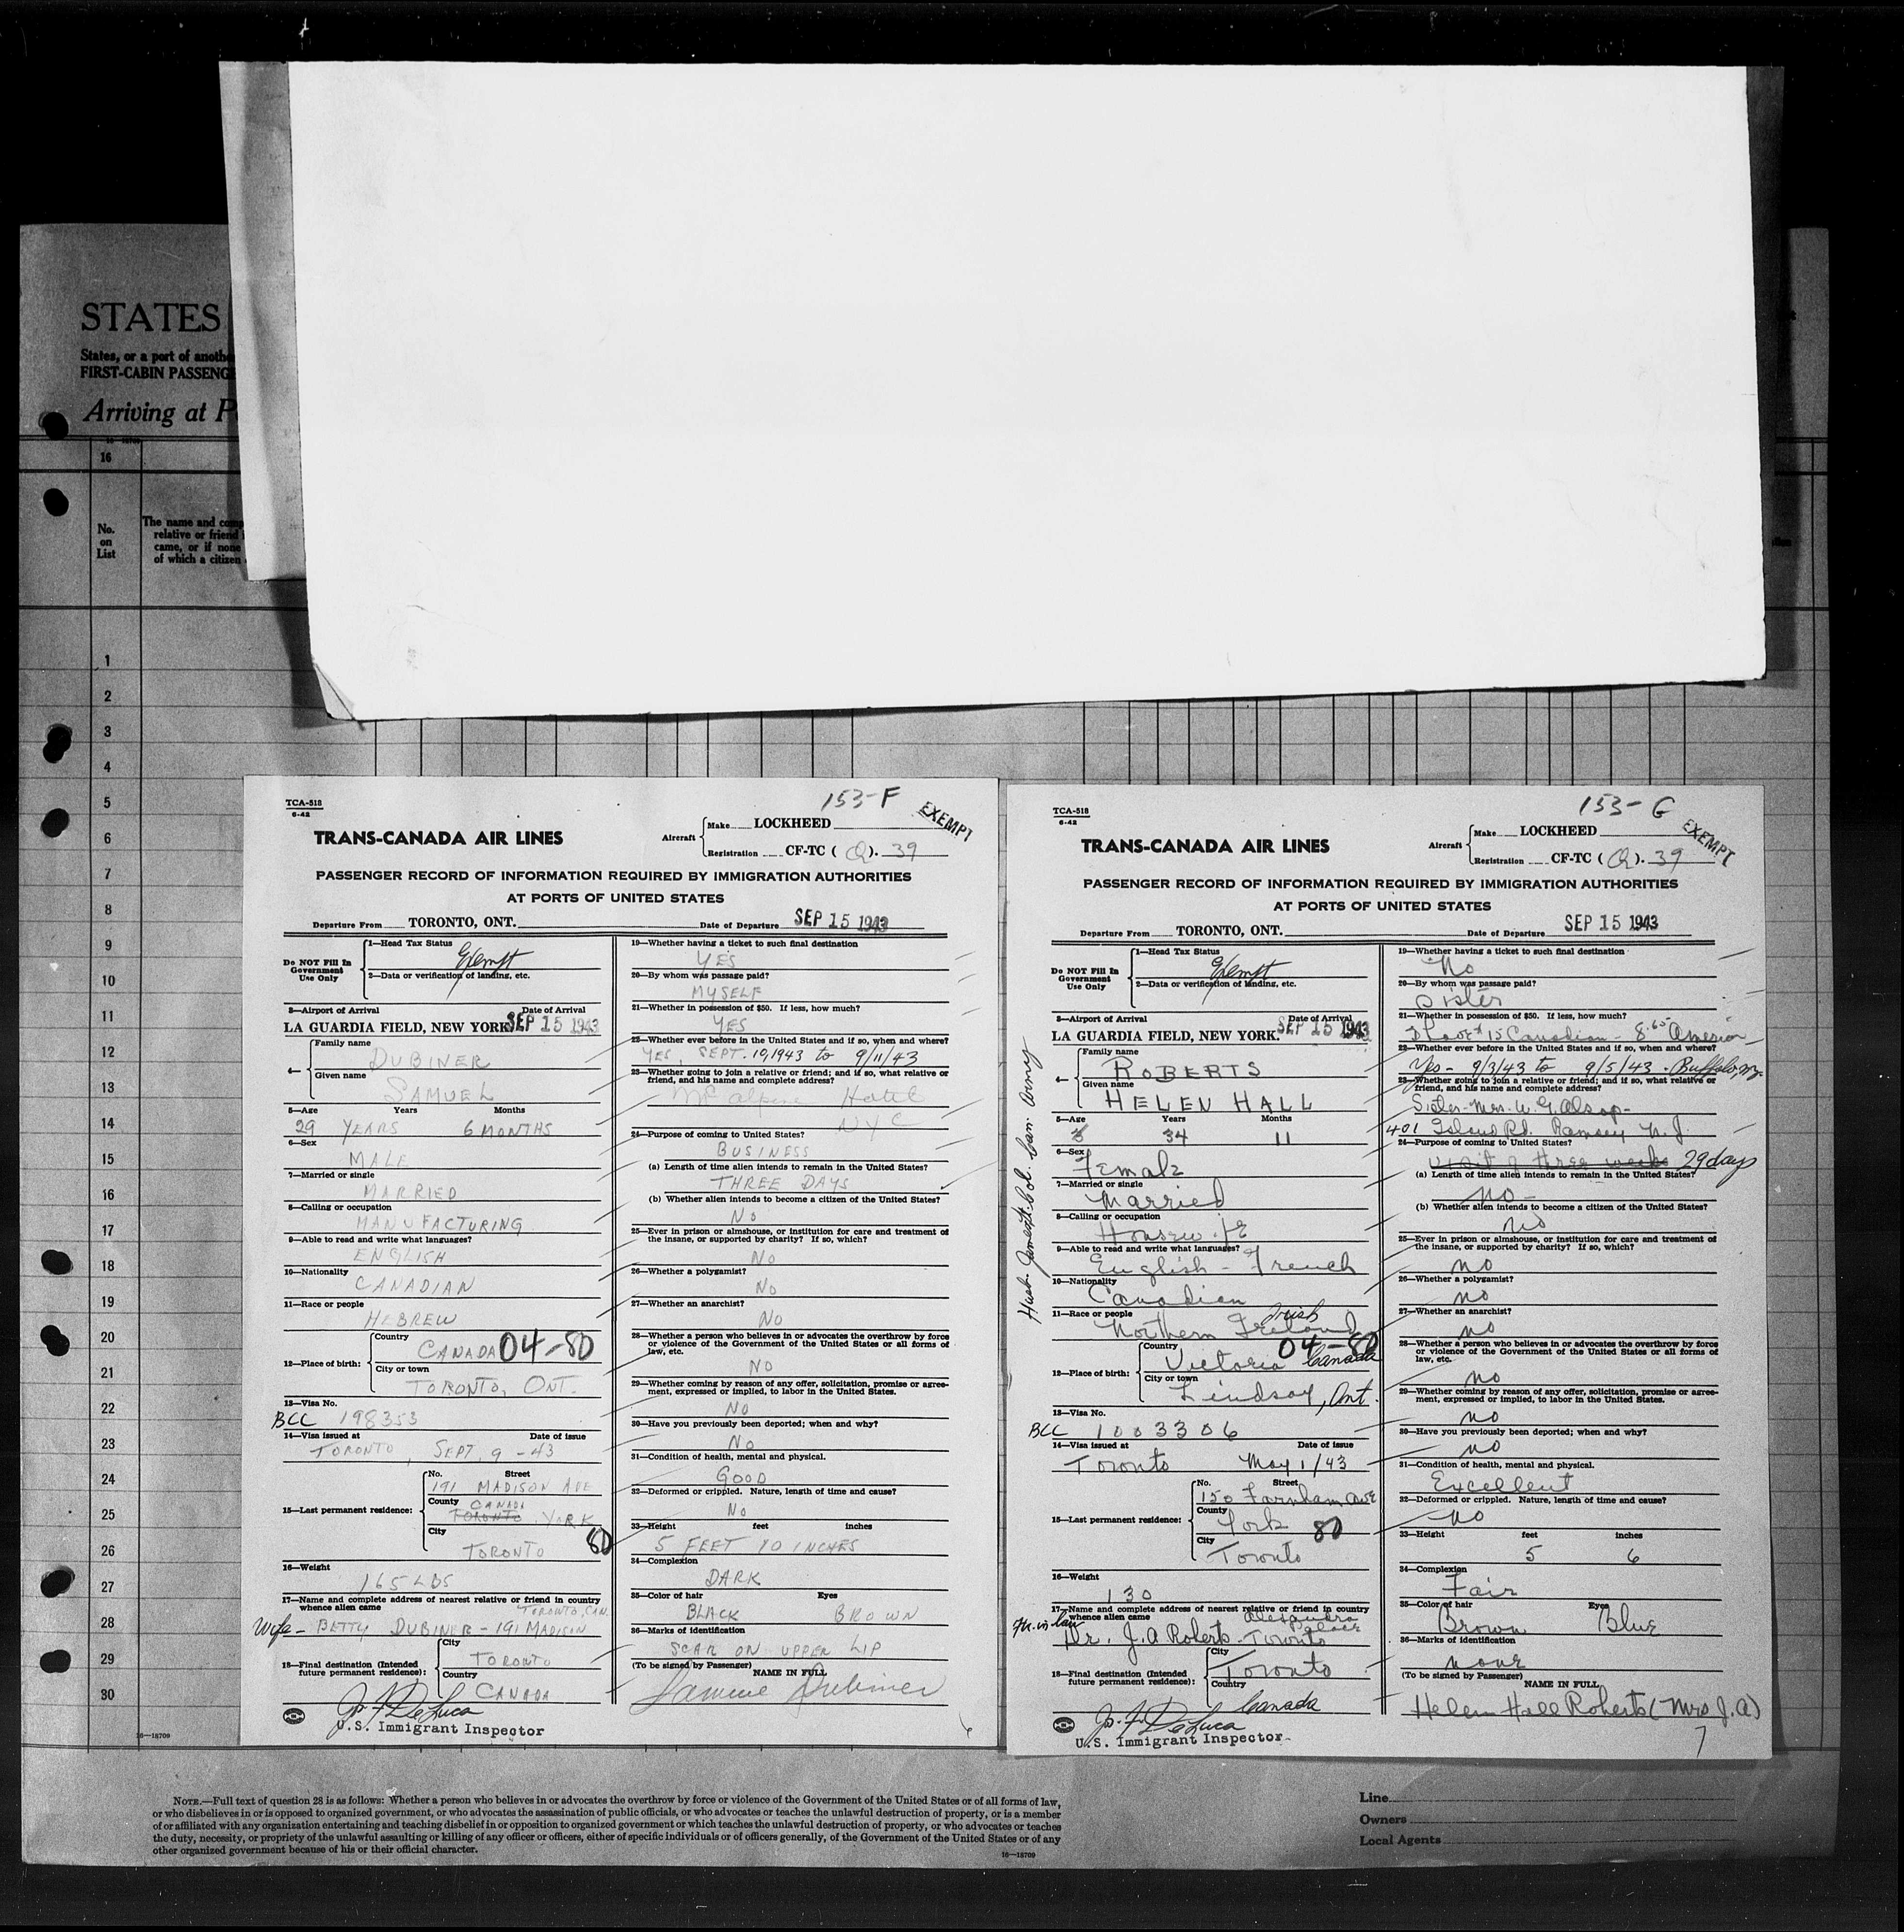 STATES
States, or a port of anothe
FIRST-CABIN PASSENGE
Arriving at P
16
No.
on
List
The name and comp
relative or friend
came, or if none
of which a citizen
1
2
3
4
5
6
7
8
9
10
11
12
13
14
15
16
17
18
19
20
21
22
23
24
25
26
27
28
29
30
16—18709
TCA-518
6-42
153-F
EXEMPT
TRANS-CANADA AIR LINES
Aircraft
Make LOCKHEED
Registration CF-TC (Q). 39
PASSENGER RECORD OF INFORMATION REQUIRED BY IMMIGRATION AUTHORITIES
AT PORTS OF UNITED STATES
Departure From TORONTO, ONT. Date of Departure SEP 15 1943
Do NOT Fill In
Government
Use Only
1—Head Tax Status
Exempt
2—Data or verification of landing, etc.
3—Airport of Arrival Date of Arrival
LA GUARDIA FIELD, NEW YORK. SEP 15 1943
4—
Family name
DUBINER
Given name
SAMUEL
5—Age Years Months
29 YEARS 6 MONTHS
6—Sex
MALE
7—Married or single
MARRIED
8—Calling or occupation
MANUFACTURING
9—Able to read and write what languages?
ENGLISH
10—Nationality
CANADIAN
11—Race or people
HEBREW
12—Place of birth:
Country
CANADA 04-80
City or town
TORONTO, ONT.
13—Visa No.
BCC 198353
14—Visa issued at Date of issue
TORONTO, SEPT. 9-43
15—Last permanent residence:
No. Street
191 MADISON AVE
County CANADA
TORONTO YORK
City
TORONTO 80
16—Weight
165 LBS
17—Name and complete address of nearest relative or friend in country
whence alien came TORONTO, CAN.
Wife- BETTY DUBINER - 191 MADISON
18—Final destination (Intended
future permanent residence):
City
TORONTO
Country
CANADA
Jo. F. DeLuca
U.S. Immigrant Inspector
19—Whether having a ticket to such final destination
YES
20—By whom was passage paid?
MYSELF
21—Whether in possession of $50. If less, how much?
YES
22—Whether ever before in the United States and if so, when and where?
YES, SEPT. 10, 1943 to 9/11/43
23—Whether going to join a relative or friend; and if so, what relative or
friend, and his name and complete address?
McAlpine Hotel
NYC
24—Purpose of coming to United States?
BUSINESS
(a) Length of time alien intends to remain in the United States?
THREE DAYS
(b) Whether alien intends to become a citizen of the United States?
NO
25—Ever in prison or almshouse, or institution for care and treatment of
the insane, or supported by charity? If so, which?
NO
26—Whether a polygamist?
NO
27—Whether an anarchist?
NO
28—Whether a person who believes in or advocates the overthrow by force
or violence of the Government of the United States or all forms of
law, etc.
NO
29—Whether coming by reason of any offer, solicitation, promise or agree-
ment, expressed or implied, to labor in the United States.
NO
30—Have you previously been deported; when and why?
NO
31—Condition of health, mental and physical.
GOOD
32—Deformed or crippled. Nature, length of time and cause?
NO
33—Height feet inches
5 FEET 10 INCHES
34—Complexion
DARK
35—Color of hair Eyes
BLACK BROWN
36—Marks of identification
SCAR ON UPPER LIP
(To be signed by Passenger) NAME IN FULL
Samuel Dubiner
TCA-518
6-42
153-G
EXEMPT
TRANS-CANADA AIR LINES
Aircraft
Make LOCKHEED
Registration CF-TC (Q). 39
PASSENGER RECORD OF INFORMATION REQUIRED BY IMMIGRATION AUTHORITIES
AT PORTS OF UNITED STATES
Departure From TORONTO, ONT. Date of Departure SEP 15 1943
Do NOT Fill In
Government
Use Only
1—Head Tax Status
Exempt
2—Data or verification of landing, etc.
3—Airport of Arrival Date of Arrival
LA GUARDIA FIELD, NEW YORK. SEP 15 1943
4—
Family name
ROBERTS
Given name
HELEN HALL
5—Age Years Months
34 11
6—Sex
Female
7—Married or single
Married
8—Calling or occupation
Housewife
9—Able to read and write what languages?
English - French
10—Nationality
Canadian
11—Race or people Irish
Northern Ireland
12—Place of birth:
Country 04-80
Victoria Canada
City or town
Lindsay, Ont.
13—Visa No.
BCC 1003306
14—Visa issued at Date of issue
Toronto May 1/43
15—Last permanent residence:
No. Street
150 Farnham Ave
County
York 80
City
Toronto
16—Weight
130
17—Name and complete address of nearest relative or friend in country
whence alien came Alexandra
Palace
Fr. in law
Dr. J. A. Roberts - Toronto
18—Final destination (Intended
future permanent residence):
City
Toronto
Country
Canada
Jo. F. DeLuca
U.S. Immigrant Inspector
Can. Army
19—Whether having a ticket to such final destination
No
20—By whom was passage paid?
Sister
21—Whether in possession of $50. If less, how much?
15 Canadian - 8.65 American
22—Whether ever before in the United States and if so, when and where?
Yes - 9/3/43 to 9/5/43 - Buffalo, NY.
23—Whether going to join a relative or friend; and if so, what relative or
friend, and his name and complete address?
Sister - Mrs. W. G. Alsop -
401 Island Rd. Ramsey N.J.
24—Purpose of coming to United States?
visit of three weeks 29 days
(a) Length of time alien intends to remain in the United States?
no -
(b) Whether alien intends to become a citizen of the United States?
no
25—Ever in prison or almshouse, or institution for care and treatment of
the insane, or supported by charity? If so, which?
no
26—Whether a polygamist?
no
27—Whether an anarchist?
no
28—Whether a person who believes in or advocates the overthrow by force
or violence of the Government of the United States or all forms of
law, etc.
no
29—Whether coming by reason of any offer, solicitation, promise or agree-
ment, expressed or implied, to labor in the United States.
no
30—Have you previously been deported; when and why?
no
31—Condition of health, mental and physical.
Excellent
32—Deformed or crippled. Nature, length of time and cause?
no
33—Height feet inches
5 6
34—Complexion
Fair
35—Color of hair Eyes
Brown Blue
36—Marks of identification
none
(To be signed by Passenger)
NAME IN FULL
Helen Hall Roberts (Mrs J. A)
7
NOTE.—Full text of question 28 is as follows: Whether a person who believes in or advocates the overthrow by force or violence of the Government of the United States or of all forms of law,
or who disbelieves in or is opposed to organized government, or who advocates the assassination of public officials, or who advocates or teaches the unlawful destruction of property, or is a member
of or affiliated with any organization entertaining and teaching disbelief in or opposition to organized government or which teaches the unlawful destruction of property, or who advocates or teaches
the duty, necessity, or propriety of the unlawful assaulting or killing of any officer or officers, either of specific individuals or of officers generally, of the Government of the United States or of any
other organized government because of his or their official character.
16—18709
Line
Owners
Local Agents